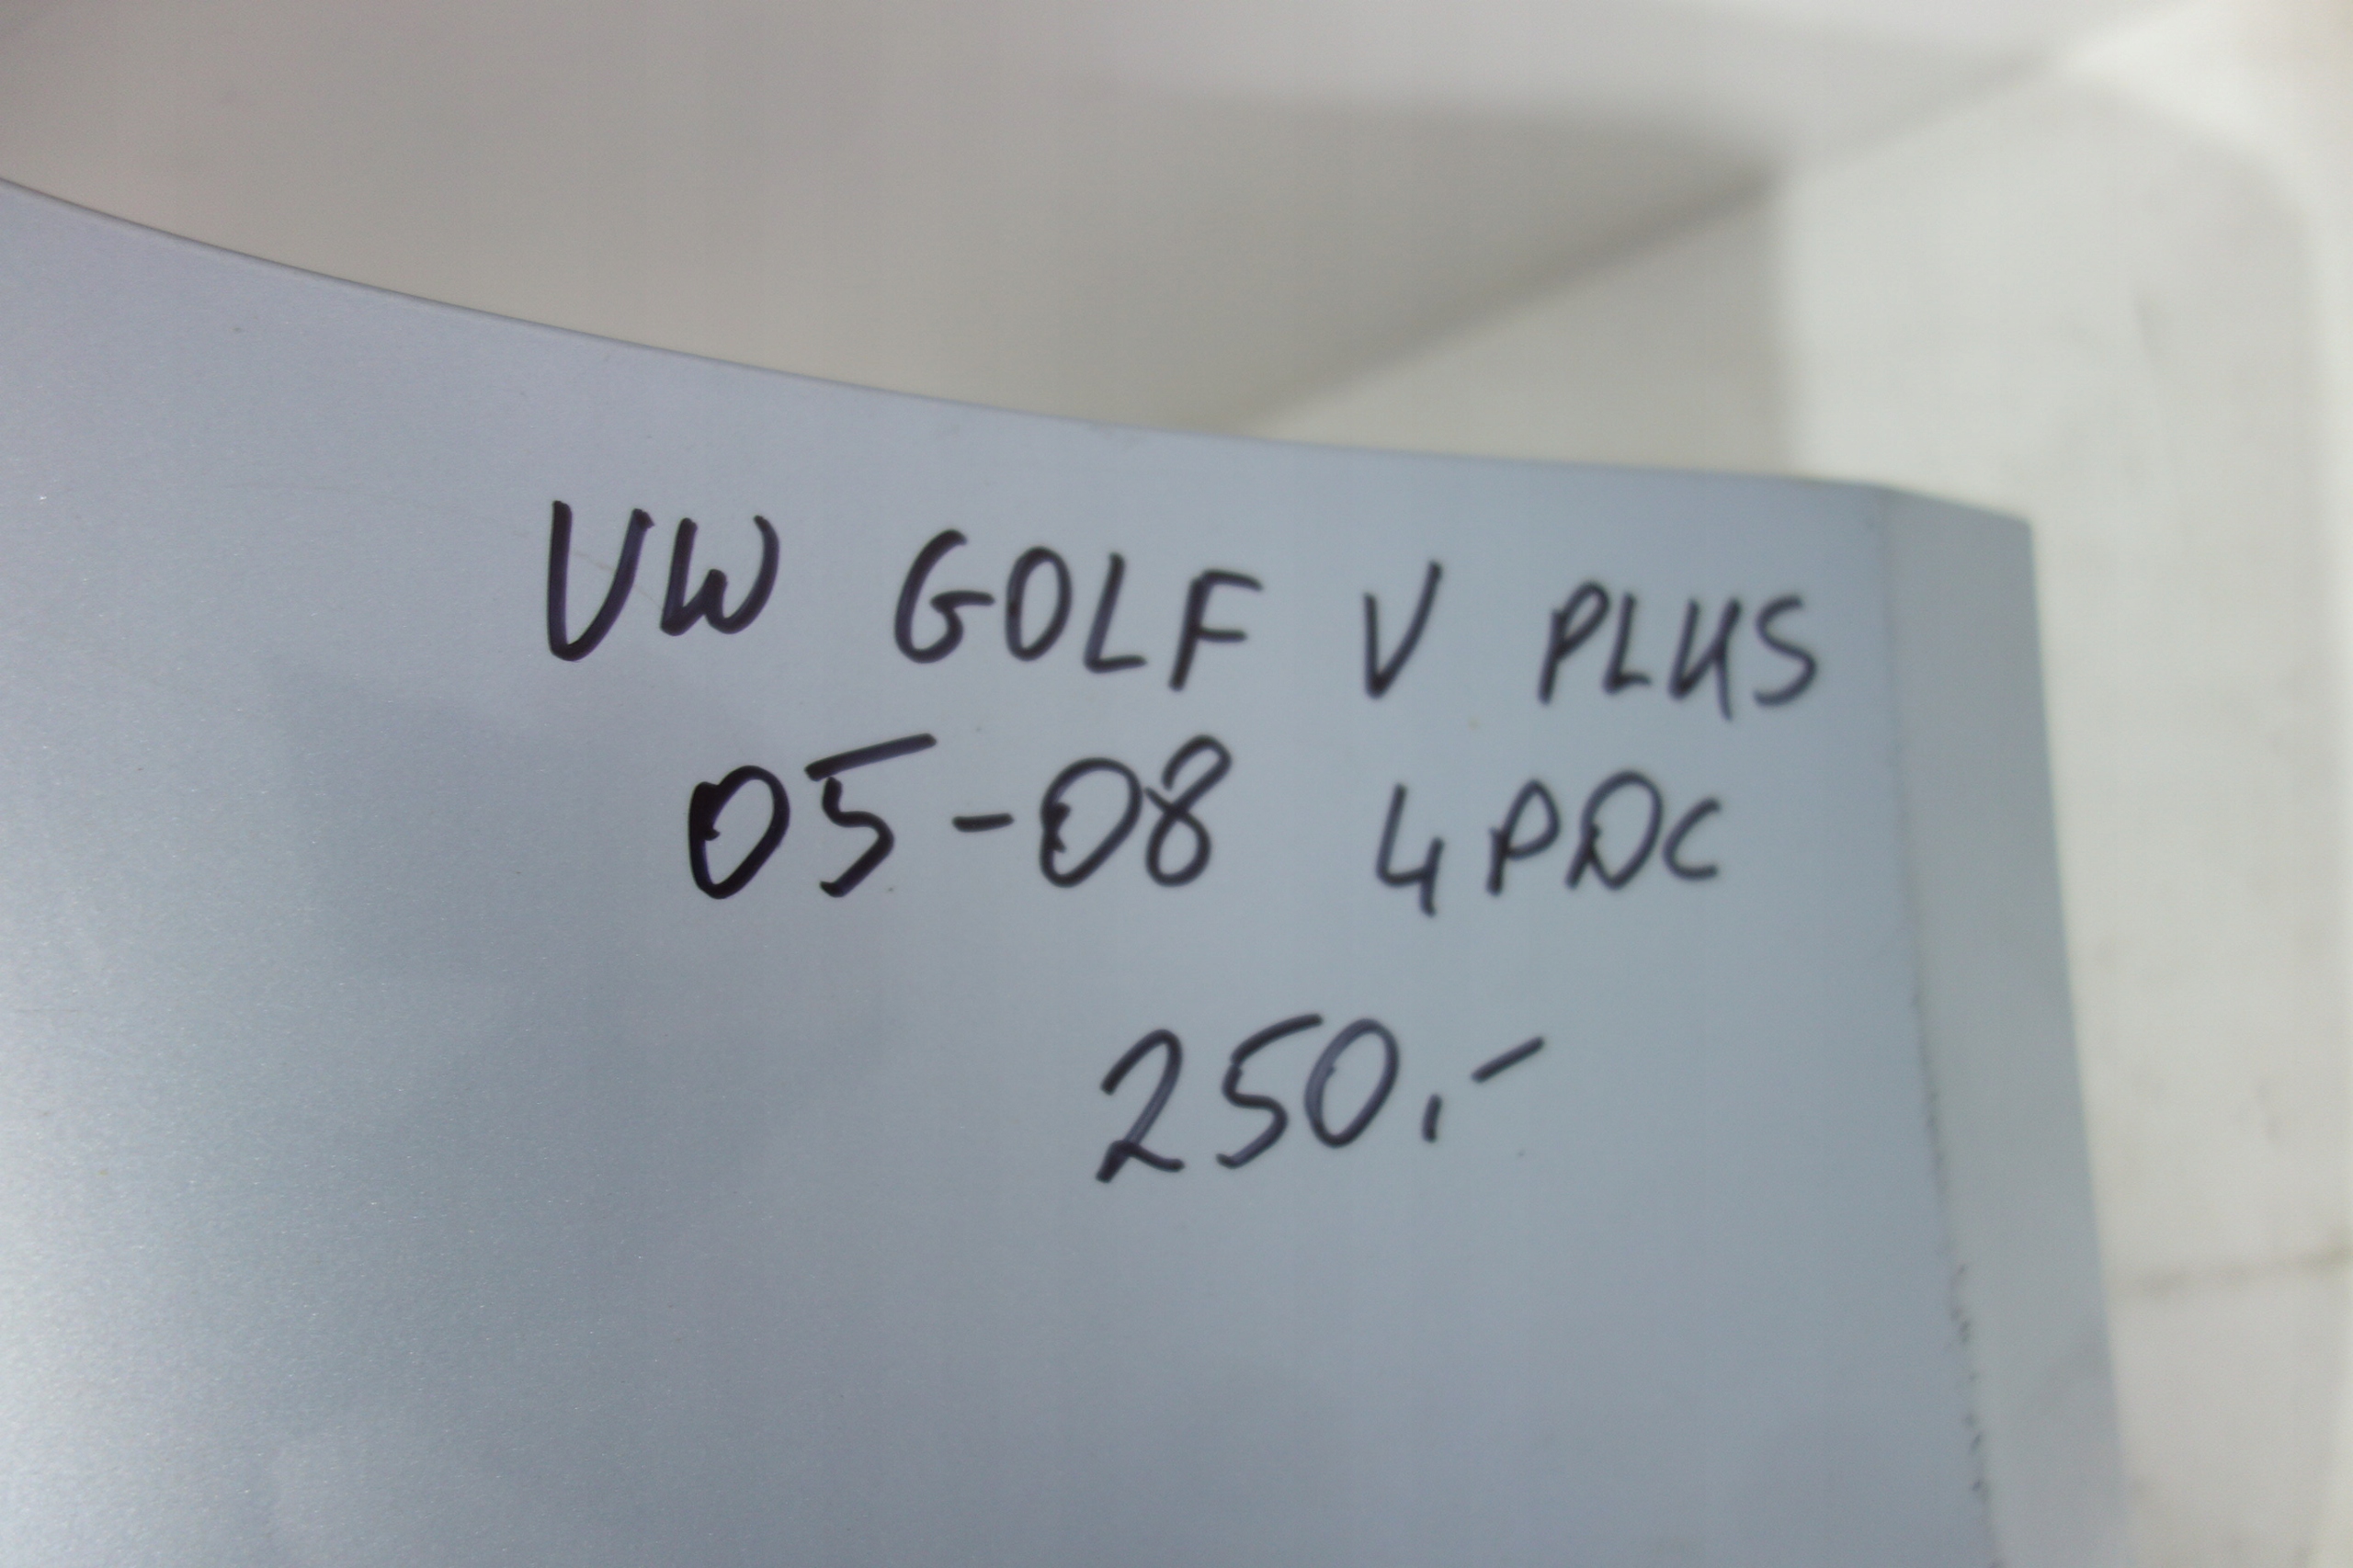 VW GOLF V PLUS
05-08 4PDC
250.-